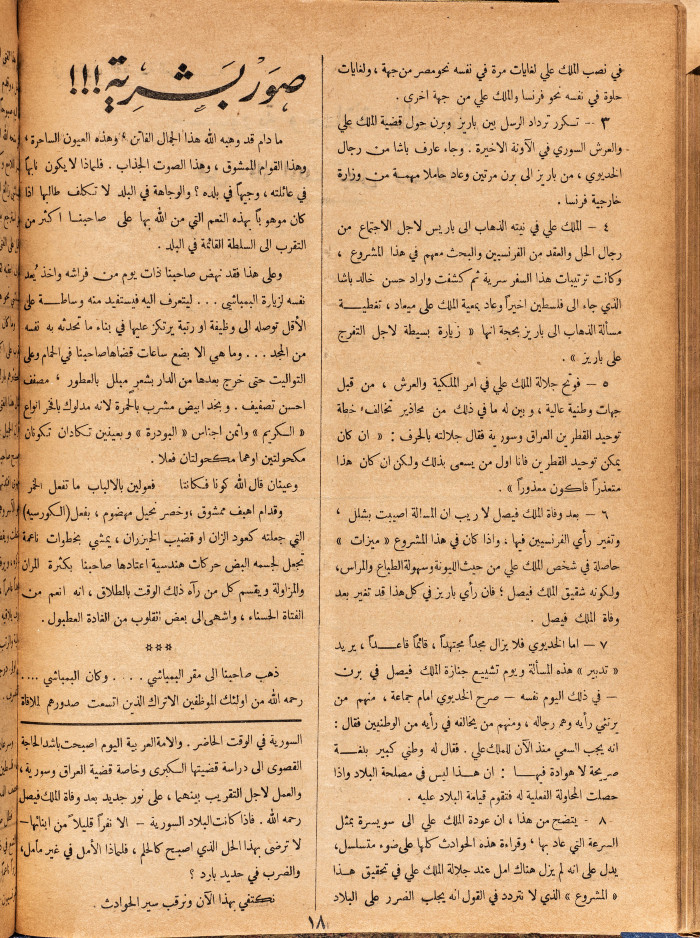 في نصب الملك علي لغايات مرة في نفسه نحو مصر من جهة ، ولغايات
حلوة في نفسه نحو فرنسا والملك علي من جهة اخرى .
٣ — تكرر ترداد الرسل بين باريز وبرن حول قضية الملك علي
والعرش السوري في الآونة الاخيرة . وجاء عارف باشا من رجال
الخديوي ، من باريز الى برن مرتين وعاد حاملا مهمة من وزارة
خارجية فرنسا .
٤ — الملك علي في نيته الذهاب الى باريس لاجل الاجتماع من
رجال الحل والعقد من الفرنسيين والبحث معهم في هذا المشروع ،
وكانت ترتيبات هذا السفر سرية ثم كشفت واراد حسن خالد باشا
الذي جاء الى فلسطين اخيراً وعاد بمعية الملك على ميعاد ، تغطية
مسألة الذهاب الى باريز بحجة انها « زيارة بسيطة لاجل التفرج
على باريز » .
٥ — فوتح جلالة الملك علي في امر الملكية والعرش ، من قبل
جهات وطنية عالية ، وبين له ما في ذلك من محاذير تخالف خطة
توحيد القطرين العراق وسورية فقال جلالته بالحرف : « ان كان
يمكن توحيد القطرين فانا اول من يسعى بذلك ولكن ان كان هذا
متعذراً فاكون معذوراً » .
٦ — بعد وفاة الملك فيصل لا ريب ان المسألة اصيبت بشلل ،
وتغير رأي الفرنسيين فيها ، واذا كان في هذا المشروع « ميزات »
حاصلة في شخص الملك علي من حيث الليونة وسهولة الطباع والمراس،
ولكونه شقيق الملك فيصل ؛ فان رأي باريز في كل هذا قد تغير بعد
وفاة الملك فيصل .
٧ — اما الخديوي فلا يزال مجداً مجتهداً ، قائماً قاعداً ، يريد
« تدبير » هذه المسألة ويوم تشييع جنازة الملك فيصل في برن
— في ذلك اليوم نفسه — صرح الخديوي امام جماعة ، منهم من
يرتئي رأيه وهم رجاله ، ومنهم من يخالفه في رأيه من الوطنيين فقال :
انه يجب السعي منذ الآن للملك علي . فقال له وطني كبير بلغة
صريحة لا هوادة فيها : ان هذا ليس في مصلحة البلاد واذا
حصلت المحاولة الفعلية له فتقوم قيامة البلاد عليه .
٨ - يتضح من هذا ، ان عودة الملك علي الى سويسرة بمثل
السرعة التي عاد بها ، وقراءة هذه الحوادث كلها على ضوء متسلسل،
يدل على انه لم يزل هناك امل عند جلالة الملك علي في تحقيق هذا
« المشروع » الذي لا نتردد في القول انه يجلب الضرر على البلاد
صور بشرية !!!
ما دام قد وهبه الله هذا الجمال الفاتن ، وهذه العيون الساحرة ،
وهذا القوام الممشوق ، وهذا الصوت الجذاب . فلماذا لا يكون نابهاً
في عائلته ، وجيهاً في بلده ؟ والوجاهة في البلد لا تكلف طالبها اذا
كان موهوباً بهذه النعم التي من الله بها على صاحبنا اكثر من
التقرب الى السلطة القائمة في البلد .
وعلى هذا فقد نهض صاحبنا ذات يوم من فراشه واخذ يُعد
نفسه لزيارة اليمباشي ... ليتعرف اليه فيستفيد منه وساطة على
الأقل توصله الى وظيفة او رتبة يرتكز عليها في بناء ما تحدثه به نفسه
من المجد ... وما هي الا بضع ساعات قضاها صاحبنا في الحمام وعلى
التواليت حتى خرج بعدها من الدار بشعرٍ مبلل بالعطور ، مصفف
احسن تصفيف . وبخد ابيض مشرب بالحمرة لانه مدلوك بافخر انواع
« الكريم » واثمن اجناس « البودرة » وبعينين تكادان تكونان
مكحولتين او هما مكحولتان فعلا .
وعينان قال الله كونا فكانتا فعولين بالالباب ما تفعل الخمر
وقدام اهيف ممشوق ، وخصر نحيل مهضوم ، بفعل (الكورسيه)
التي جعلته كعود الزان او قضيب الخيزران ، يمشي بخطوات ناعمة
تجعل لجسمه البض حركات هندسية اعتادها صاحبنا بكثرة المران
والمزاولة ويقسم كل من رآه ذلك الوقت بالطلاق ، انه انعم من
الفتاة الحسناء ، واشهى الى بعض القلوب من الغادة العطبول .
***
ذهب صاحبنا الى مقر اليمباشي .... وكان اليمباشي ....
رحمه الله من اولئك الموظفين الاتراك الذين اتسعت صدورهم لملاقاة
السورية في الوقت الحاضر . والامة العربية اليوم اصبحت باشد الحاجة
القصوى الى دراسة قضيتها الكبرى وخاصة قضية العراق وسورية ،
والعمل لاجل التقريب بينهما ، على نور جديد بعد وفاة الملك فيصل
رحمه الله . فاذا كانت البلاد السورية – الا نفراً قليلاً من ابنائها–
لا ترضى بهذا الحل الذي اصبح كالحلم ، فلماذا الأمل في غير مأمل،
والضرب في حديد بارد ؟
نكتفي بهذا الآن ونرقب سير الحوادث .
١٨